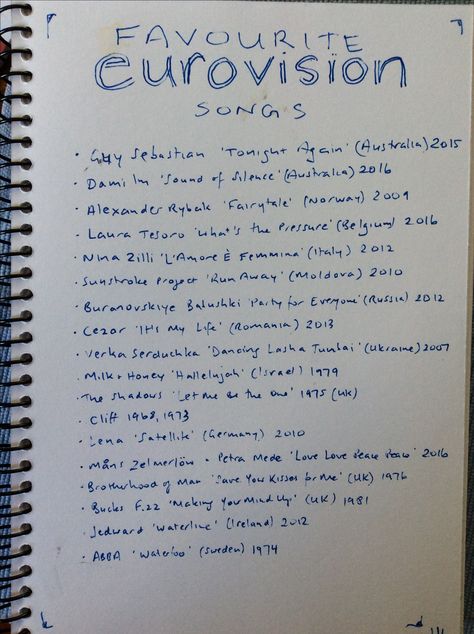 FAVOURITE
eurovision
SONGS
• Guy Sebastian 'Tonight Again' (Australia) 2015
• Dami Im 'Sound of Silence' (Australia) 2016
• Alexander Rybak 'Fairytale' (Norway) 2009
• Laura Tesoro 'What's the Pressure' (Belgium) 2016
• Nina Zilli 'L'Amore È Femmina' (Italy) 2012
• Sunstroke Project 'Run Away' (Moldova) 2010
• Buranovskiye Babushki 'Party for Everyone' (Russia) 2012
• Cezar 'It's My Life' (Romania) 2013
• Verka Serduchka 'Dancing Lasha Tumbai' (Ukraine) 2007
• Milk + Honey 'Hallelujah' (Israel) 1979
• The Shadows 'Let Me Be the One' 1975 (UK)
• Cliff 1968, 1973
• Lena 'Satellite' (Germany) 2010
• Måns Zelmerlöw + Petra Mede 'Love Love Peace Peace' 2016
• Brotherhood of Man 'Save Your Kisses for Me' (UK) 1976
• Bucks Fizz 'Making Your Mind Up' (UK) 1981
• Jedward 'Waterline' (Ireland) 2012
• ABBA 'Waterloo' (Sweden) 1974